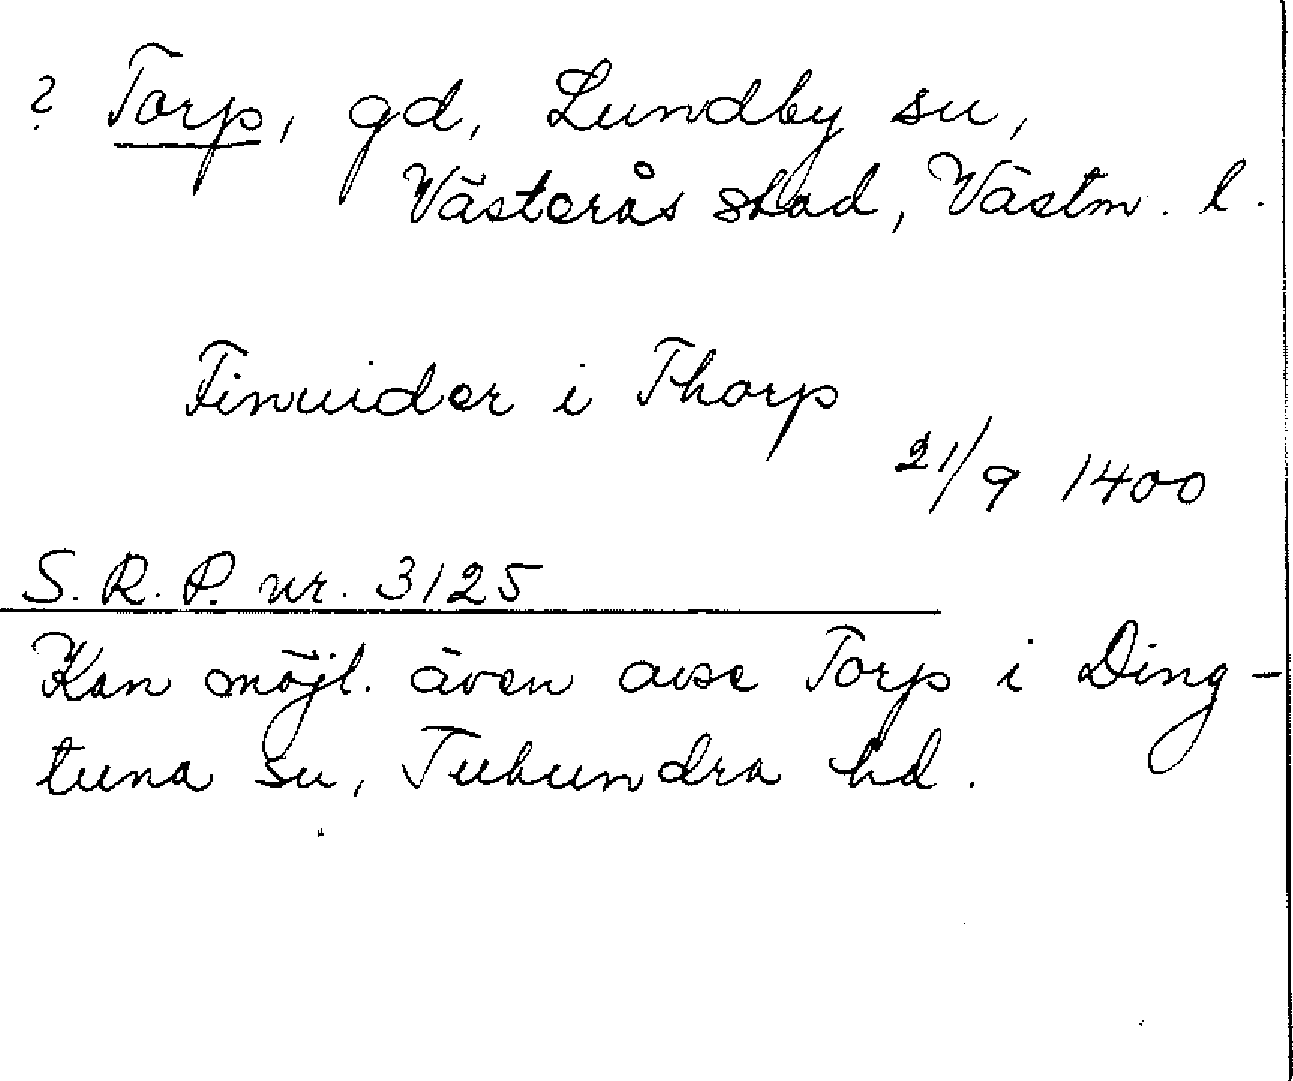 ? Torp, gd, Lundby sn,
Västerås stad, Västm. l.
Finuider i Thorp
21/9 1400
S. R. P. nr. 3125
Kan möjl. även avse Torp i Ding-
tuna sn, Tuhundra hd.